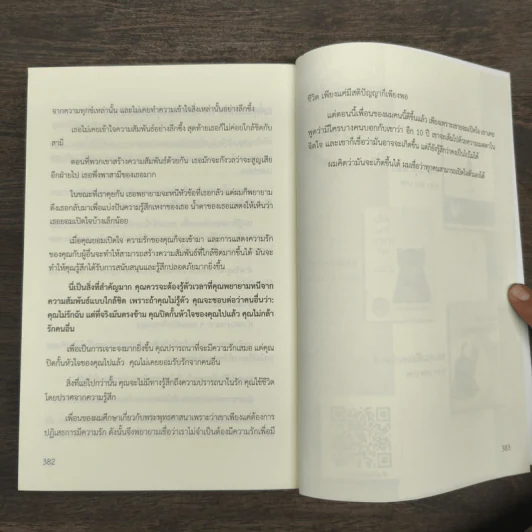 จากความทุกข์เหล่านั้น และไม่เคยทำความเข้าใจสิ่งเหล่านั้นอย่างลึกซึ้ง
เธอไม่เคยเข้าใจความสัมพันธ์อย่างลึกซึ้ง สุดท้ายเธอก็ไม่ค่อยใกล้ชิดกับ
สามี
ตอนที่พวกเขาสร้างความสัมพันธ์ด้วยกัน เธอมักจะกังวลว่าจะสูญเสีย
อีกฝ่ายไป เธอพึ่งพาสามีของเธอมาก
ในขณะที่เราคุยกัน เธอพยายามจะหนีหัวข้อที่เธอกลัว แต่ผมก็พยายาม
ดึงเธอกลับมาเพื่อแบ่งปันความรู้สึกเหงาของเธอ น้ำตาของเธอแสดงให้เห็นว่า
เธอยอมเปิดใจบ้างเล็กน้อย
เมื่อคุณยอมเปิดใจ ความรักของคุณก็จะเข้ามา และการแสดงความรัก
ของคุณกับผู้อื่นจะทำให้สามารถสร้างความสัมพันธ์ที่ใกล้ชิดมากขึ้นได้ มันจะ
ทำให้คุณรู้สึกได้รับการสนับสนุนและรู้สึกปลอดภัยมากยิ่งขึ้น
นี่เป็นสิ่งที่สำคัญมาก คุณควรจะต้องรู้ตัวเวลาที่คุณพยายามหนีจาก
ความสัมพันธ์แบบใกล้ชิด เพราะถ้าคุณไม่รู้ตัว คุณจะชอบต่อว่าคนอื่นว่า:
คุณไม่รักฉัน แต่ที่จริงมันตรงข้าม คุณปิดกั้นหัวใจของคุณไปแล้ว คุณไม่กล้า
รักคนอื่น
เพื่อเป็นการเจาะจงมากยิ่งขึ้น คุณปรารถนาที่จะมีความรักเสมอ แต่คุณ
ปิดกั้นหัวใจของคุณไปแล้ว คุณไม่เคยยอมรับรักจากคนอื่น
สิ่งที่แย่ไปกว่านั้น คุณจะไม่มีทางรู้สึกถึงความปรารถนาในรัก คุณใช้ชีวิต
โดยปราศจากความรู้สึก
เพื่อนของผมศึกษาเกี่ยวกับพระพุทธศาสนาเพราะว่าเขาเพียงแค่ต้องการ
ปฏิเสธการมีความรัก ดังนั้นจึงพยายามเชื่อว่าเราไม่จำเป็นต้องมีความรักเพื่อมี
382
ชีวิต เพียงแค่มีสติปัญญาก็เพียงพอ
แต่ตอนนี้เพื่อนของผมคนนี้ดีขึ้นแล้ว เพียงเพราะเขายอมเปิดใจ เขาเคย
พูดว่ามีใครบางคนบอกกับเขาว่า อีก 10 ปี เขาจะเต็มไปด้วยความเมตตาใน
จิตใจ และเขาก็เชื่อว่ามันอาจจะเกิดขึ้น แต่ก็ยังรู้สึกว่าคงเป็นไปไม่ได้
ผมคิดว่ามันจะเกิดขึ้นได้ ผมเชื่อว่าทุกคนสามารถเปิดใจตัวเองได้
383